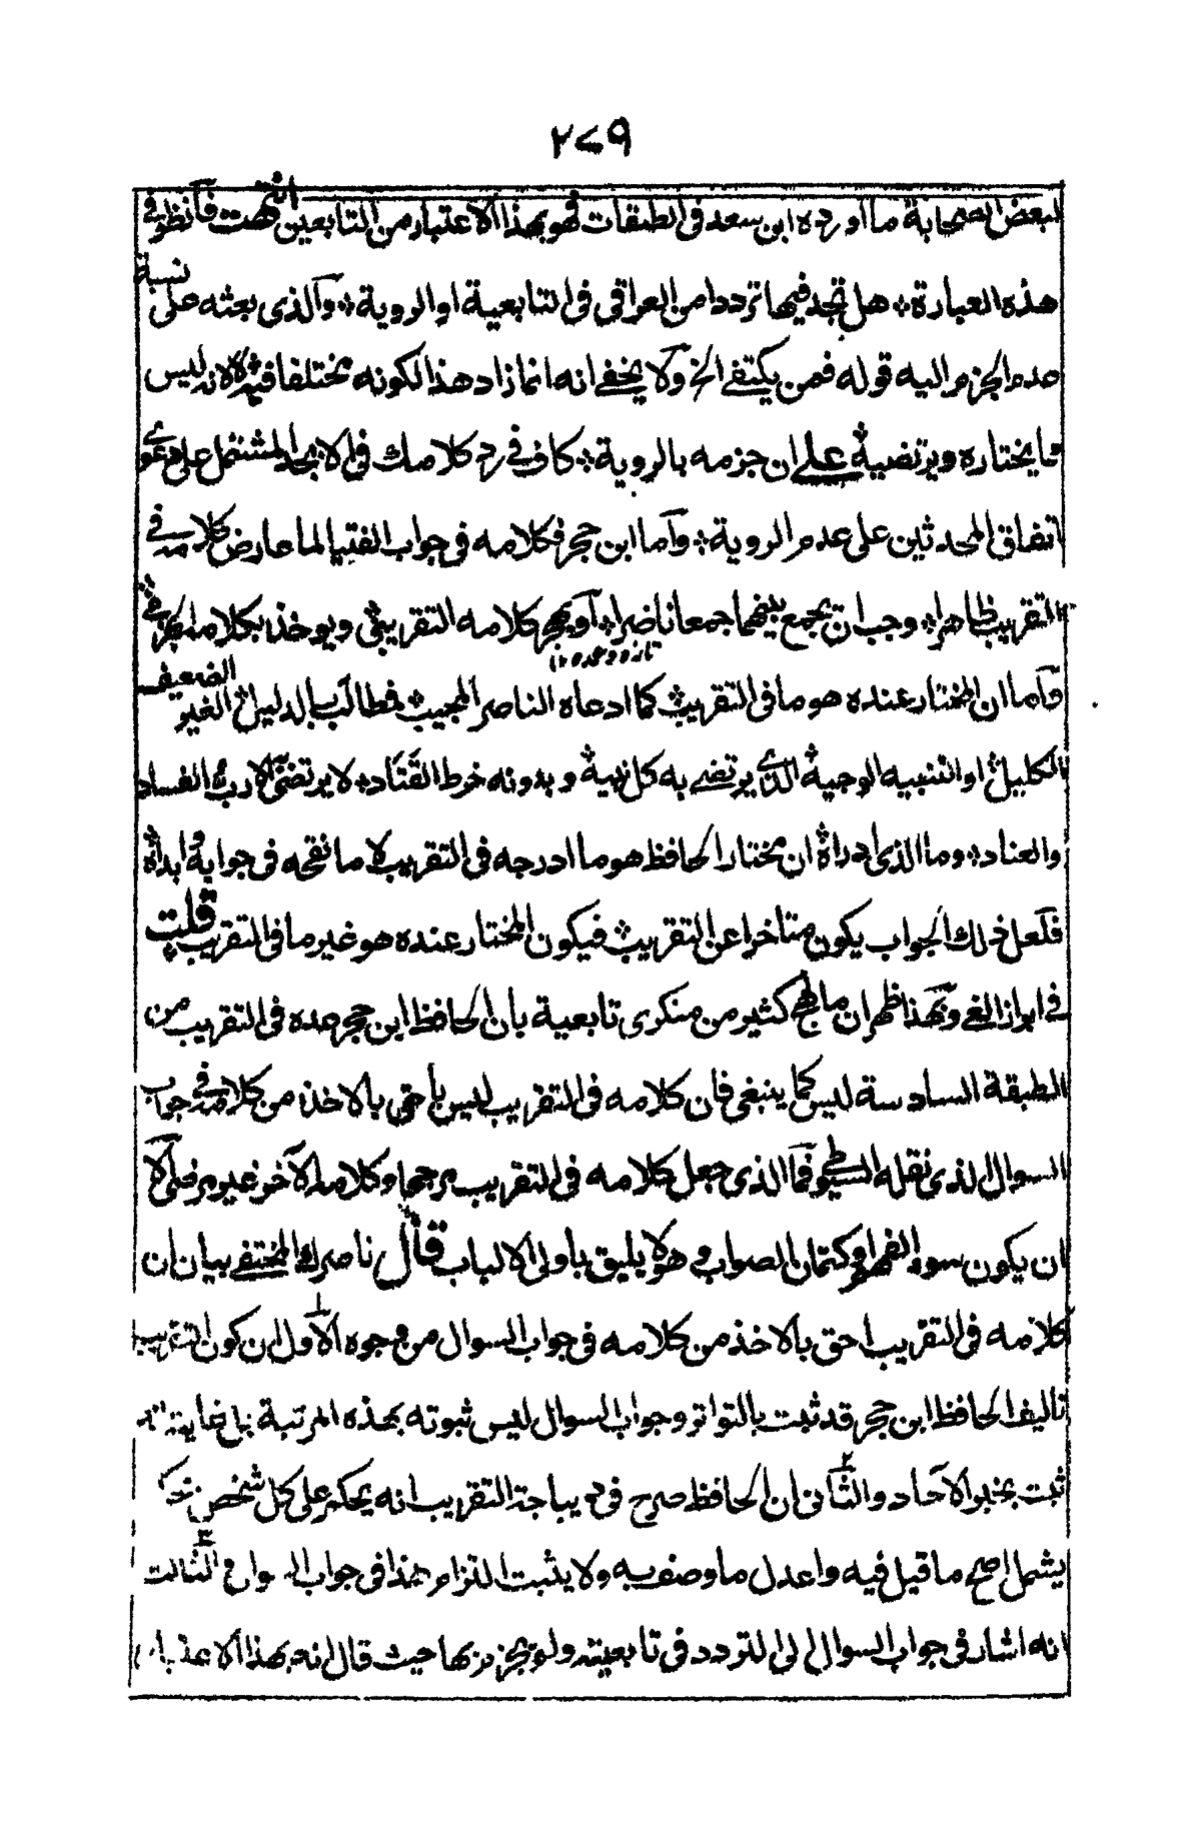 ٢٧٩
لبعض الصحابة ما اورده ابن سعد فى الطبقات فهو بهذا الاعتبار من التابعين انتهت فانظر فى
هذه العبارة هل تجد فيها ترددا من العراقى فى التابعية او الروية والذى بعثه على نسبة
عدم الجزم اليه قوله فمن يكتفى الخ ولا يخفى انه انما زاد هذا لكونه مختلفا فيه لا لانه ليس
مما يختاره ويرتضيه على ان جزمه بالروية كاف فى رد كلامك فى الابجد المشتمل على دعوى
اتفاق المحدثين على عدم الروية واما ابن حجر فكلامه فى جواب الفتيا لما عارض كلامه فى
التقريب ظاهرا وجب ان يجمع بينهما جمعا ناضرا او يهجر كلامه التقريبى ويوخذ بكلامه
تازه وعمده ١٢
واما ان المختار عنده هو ما فى التقريب كما ادعاه الناصر المجيب فمطالب بالدليل الغير الضعيف
الكليل او التنبيه الوجيه الذى يرتضى به كل نبيه وبدونه خرط القتاد لا يرتضى الا رب الفساد
والعناد وما الذى ادراه ان مختار الحافظ هو ما ادرجه فى التقريب لا ما نقحه فى جوابه وابداه
فلعل ذلك الجواب يكون متاخرا عن التقريب فيكون المختار عنده هو غير ما فى التقريب قلت
فى ابراز الغى وبهذا ظهر ان ما لهج كثير من منكرى تابعية بان الحافظ ابن حجر عده فى التقريب من
الطبقة السادسة ليس كما ينبغى فان كلامه فى التقريب ليس باحق بالاخذ من كلامه فى جواب
السوال الذى نقله السيوطى فما الذى جعل كلامه فى التقريب مرجحا وكلامه الآخر غير مرضى الا
ان يكون سوء الفهم او كتمان الصواب وهو لا يليق باولى الالباب قال ناصرك المختفى بيان ان
كلامه فى التقريب احق بالاخذ من كلامه فى جواب السوال من وجوه الاول ان كون التقريب
تاليف الحافظ ابن حجر قد ثبت بالتواتر وجواب السوال ليس ثبوته بهذه المرتبة بل غايته انه
ثبت بخبر الآحاد والثانى ان الحافظ صرح فى ديباجة التقريب انه يحكم على كل شخص بحكم
يشمل اصح ما قيل فيه واعدل ما وصف به ولا يثبت التزام هذا فى جواب السوال والثالث
انه اشار فى جواب السوال الى التردد فى تابعيته ولم يجزم بها حيث قال انه بهذا الاعتبار